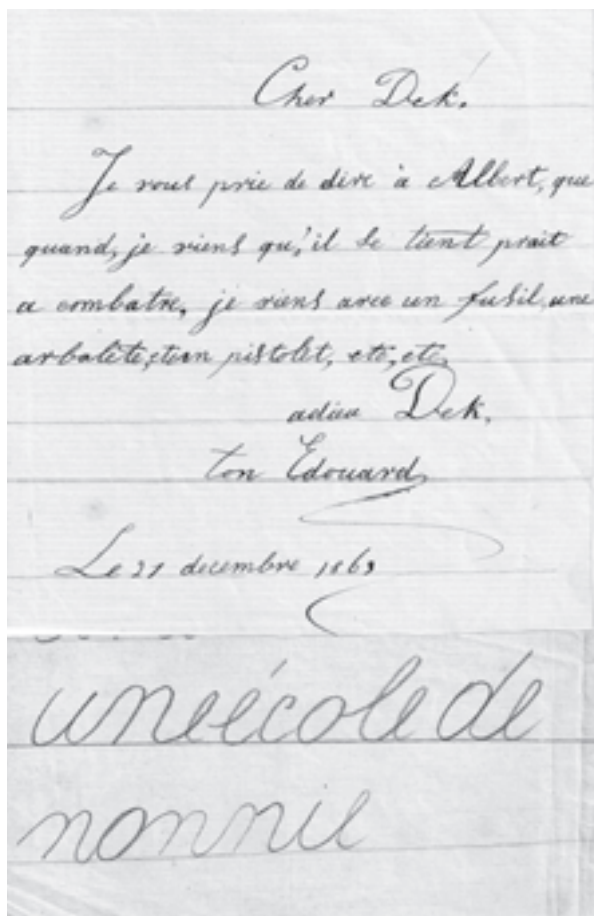 Cher Dek.
Je vous prie de dire à Albert, que
quand, je viens qu'il se tient prait
a combatre, je viens avec un fusil, une
arbalète, et un pistolet, etc, etc.
adieu Dek.
ton Edouard
Le 21 decembre 1863
une école de
nonnie